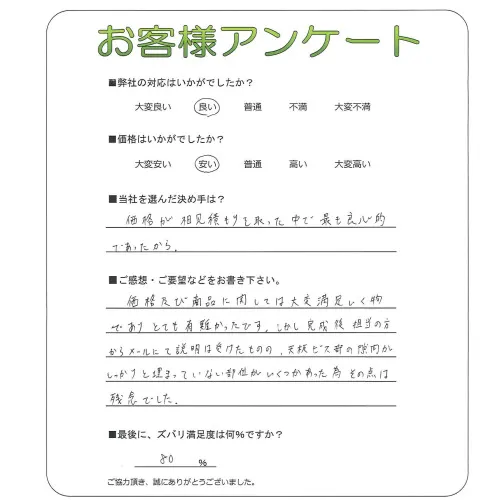 お客様アンケート
■弊社の対応はいかがでしたか？
大変良い 良い 普通 不満 大変不満
■価格はいかがでしたか？
大変安い 安い 普通 高い 大変高い
■当社を選んだ決め手は？
価格が相見積もりを取った中で最も良心的
であったから。
■ご感想・ご要望などをお書き下さい。
価格及び商品に関しては大変満足いく物
であり とても有難かったです。しかし完成後 担当の方
からメールにて説明は受けたものの、天板ビス部の隙間が
しっかりと埋まっていない部位がいくつかあった為 その点は
残念でした。
■最後に、ズバリ満足度は何%ですか？
80 %
ご協力頂き、誠にありがとうございました。